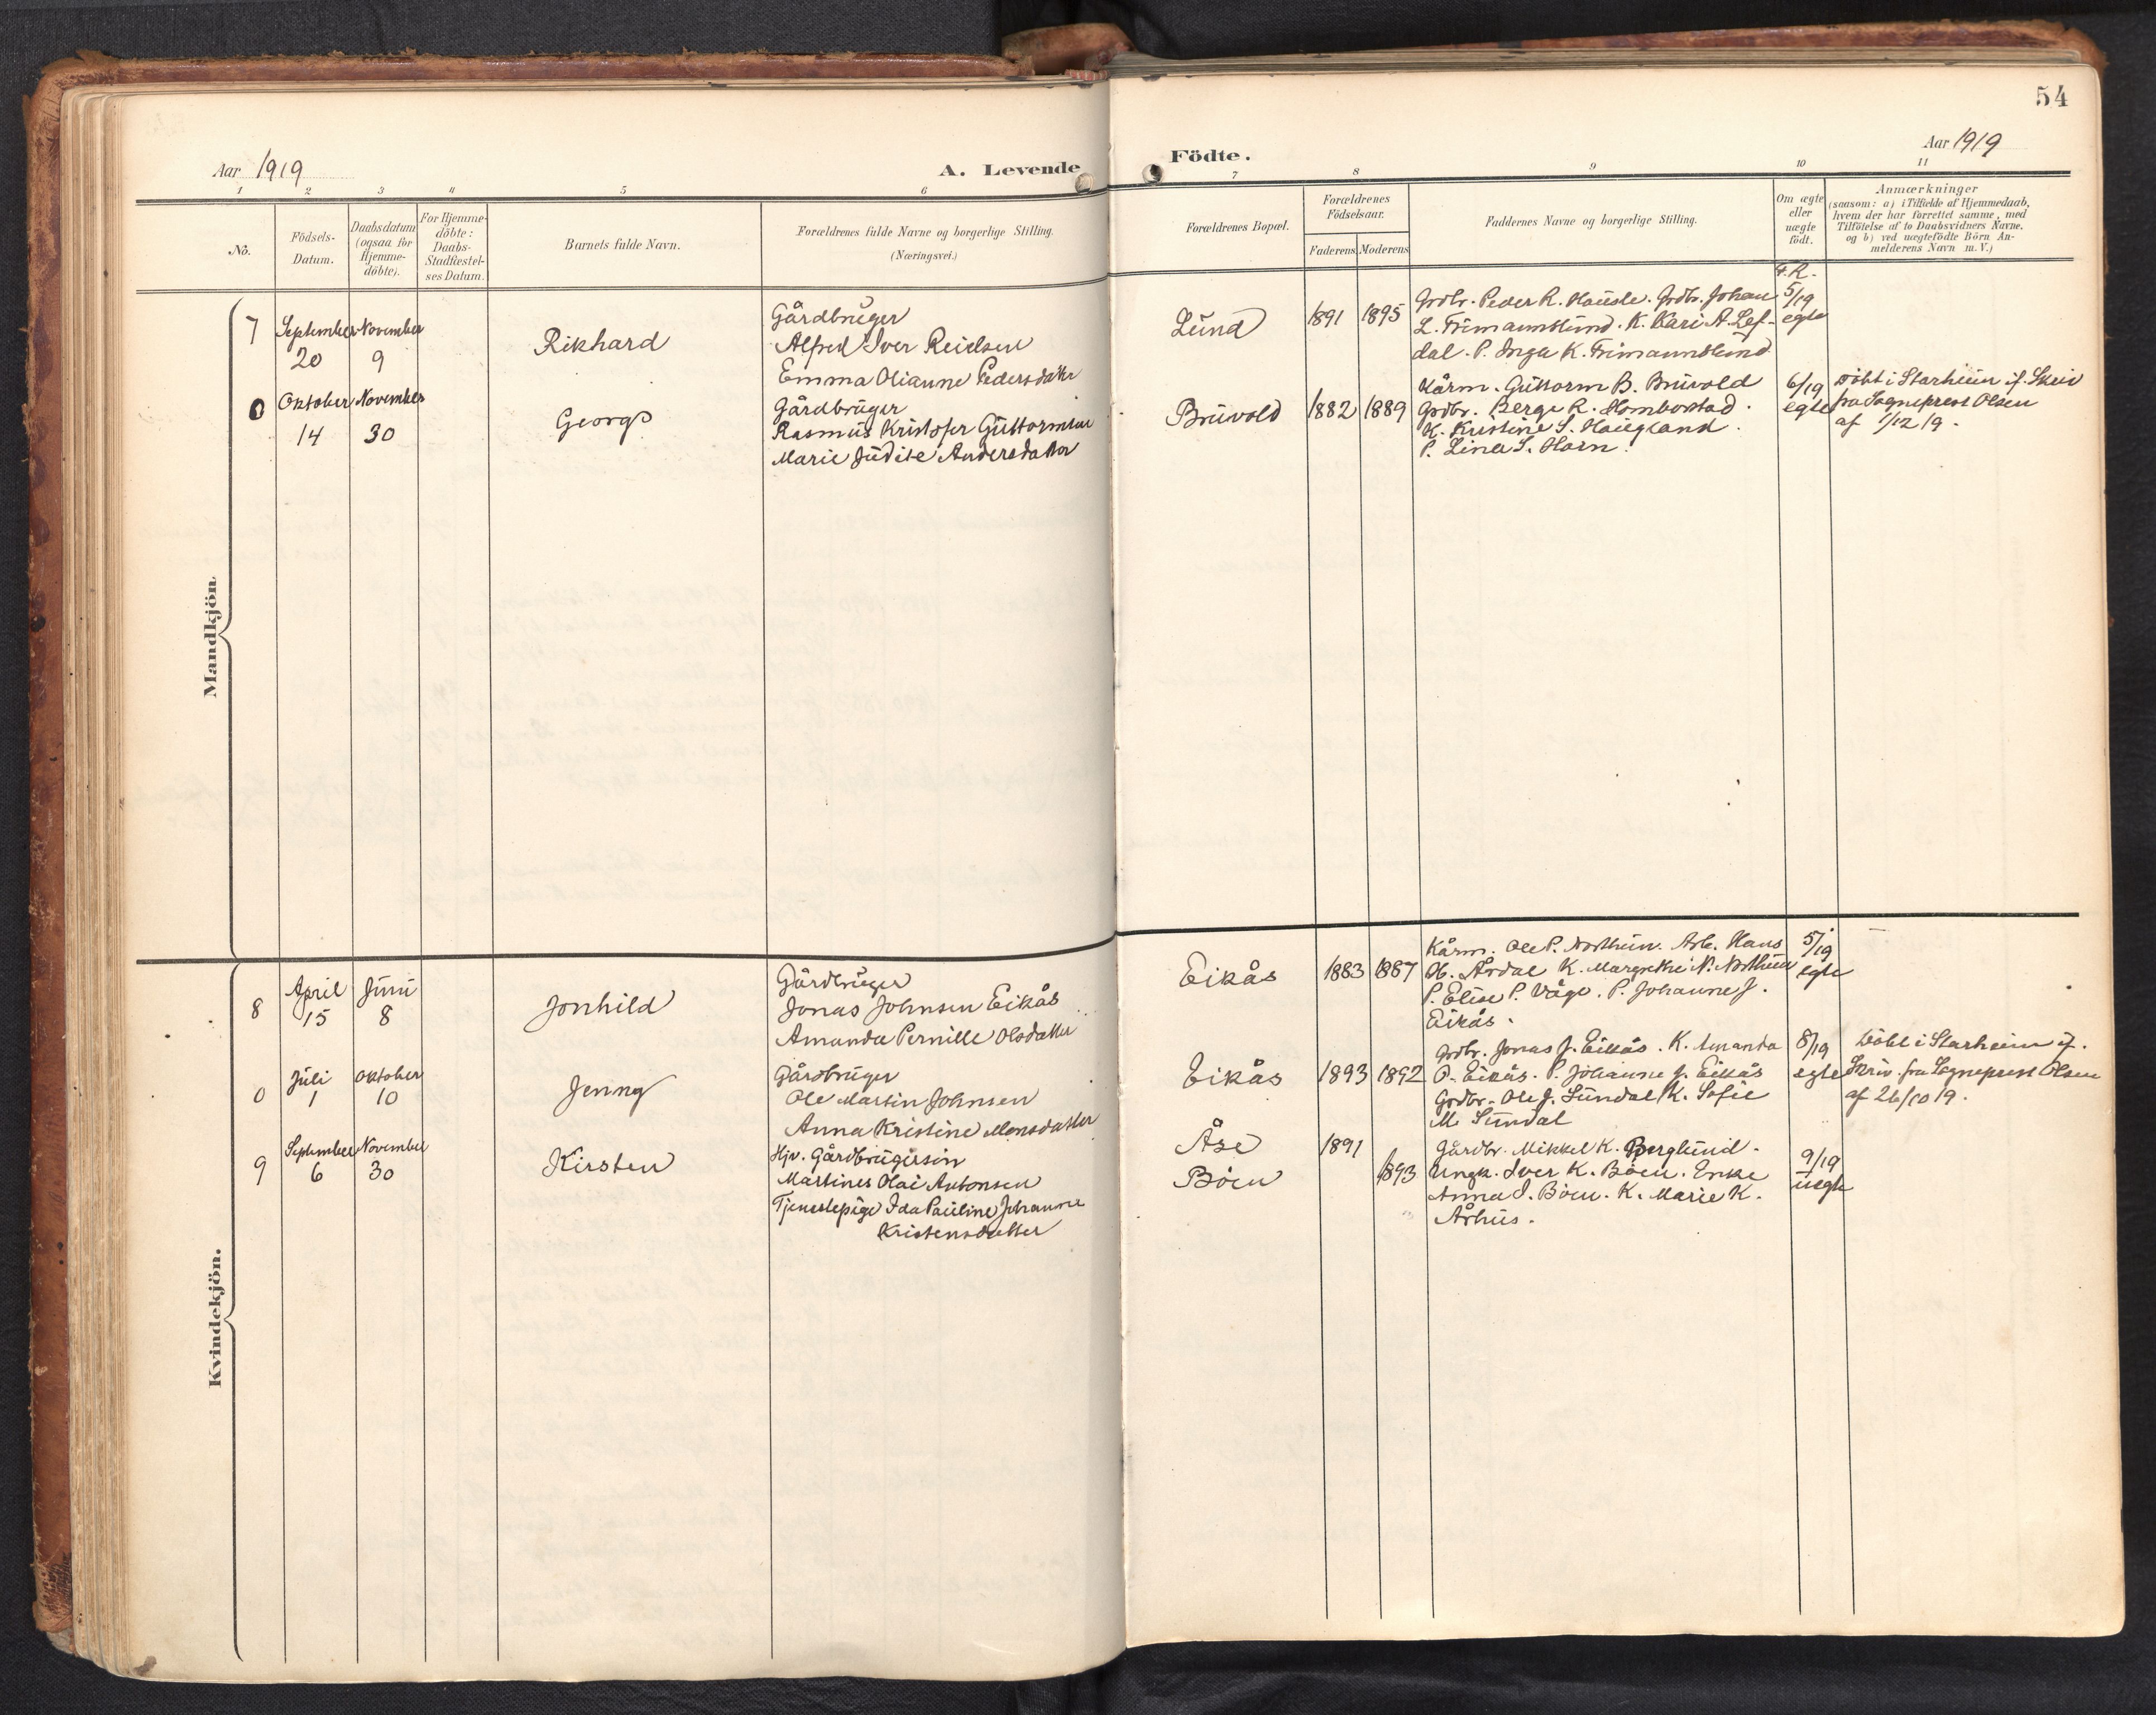 54
Aar 1919
A. Levende
Födte.
Aar 1919
1 2 3 4 5 6 7 8 9 10 11
No.
Födsels-
Datum.
Daabsdatum
(ogsaa for
Hjemme-
döbte).
For Hjemme-
döbte:
Daabs-
Stadfæstel-
ses Datum.
Barnets fulde Navn.
Forældrenes fulde Navne og borgerlige Stilling.
(Næringsvei.)
Forældrenes Bopæl.
Forældrenes
Födselsaar.
Faderens Moderens
Faddernes Navne og borgerlige Stilling.
Om ægte
eller
uægte
födt.
Anmærkninger
(saasom: a) i Tilfælde af Hjemmedaab,
hvem der har forrettet samme, med
Tilföielse af to Daabsvidners Navne.
og b) ved uægtefödte Börn An-
melderens Navn m. V.)
Mandkjön.
7
September
20
November
9
Rikhard
Gårdbruger
Alfred Iver Reidsen
Emma Olianne Pedersdatter
Lund
1891
1895
Grdbr. Peder R. Hausle. Grdbr. Johan
L. Frimannslund. K. Kari A. Lef-
dal. P. Inga K. Frimannslund
F. R.
5/19
egte
0
Oktober
14
November
30
Georg
Gårdbruger
Rasmus Kristofer Guttormsen
Marie Judite Andersdatter
Bruvold
1882
1889
Kårm. Guttorm B. Bruvold
Grdbr. Berge R. Hombostad.
K. Kristine S. Haugland.
P. Lina S. Horn.
6/19
egte
Döbt i Starheim if. Skriv
fra Sogneprest Olsen
af 1/12 19.
Kvindekjön.
8
April
15
Juni
8
Jonhild
Gårdbruger
Jonas Johnsen Eikås
Amanda Pernille Olsdatter
Eikås
1883
1887
Kårm. Ole P. Nordheim. Arb. Hans
O. Årdal K. Margrethe N. Nordheim
P. Elise P. Våge. P. Johanne J.
Eikås.
5/19
egte
0
Juli
1
Oktober
10
Jenny
Gårdbruger
Ole Martin Johnsen
Anna Kristine Monsdatter
Eikås
1893
1892
Grdbr. Jonas J. Eikås. K. Amanda
O. Eikås. P. Johanne J. Eikås
Grdbr. Ole J. Sundal K. Sofie
M. Sundal
8/19
egte
Döbt i Starheim if.
Skriv. fra Sogneprest Olsen
af 26/10 19.
9
September
6
November
30
Kirsten
Hjv. Gårdbrugersön
Martines Olai Antonsen
Tjenestepige Ida Pauline Johanne
Kristensdatter
Åse
Böen
1891
1893
Gårdbr. Mikkel K. Berglund.
Ungk. Iver K. Böen. Enke
Anna I. Böen. K. Marie K.
Århus.
9/19
uegte